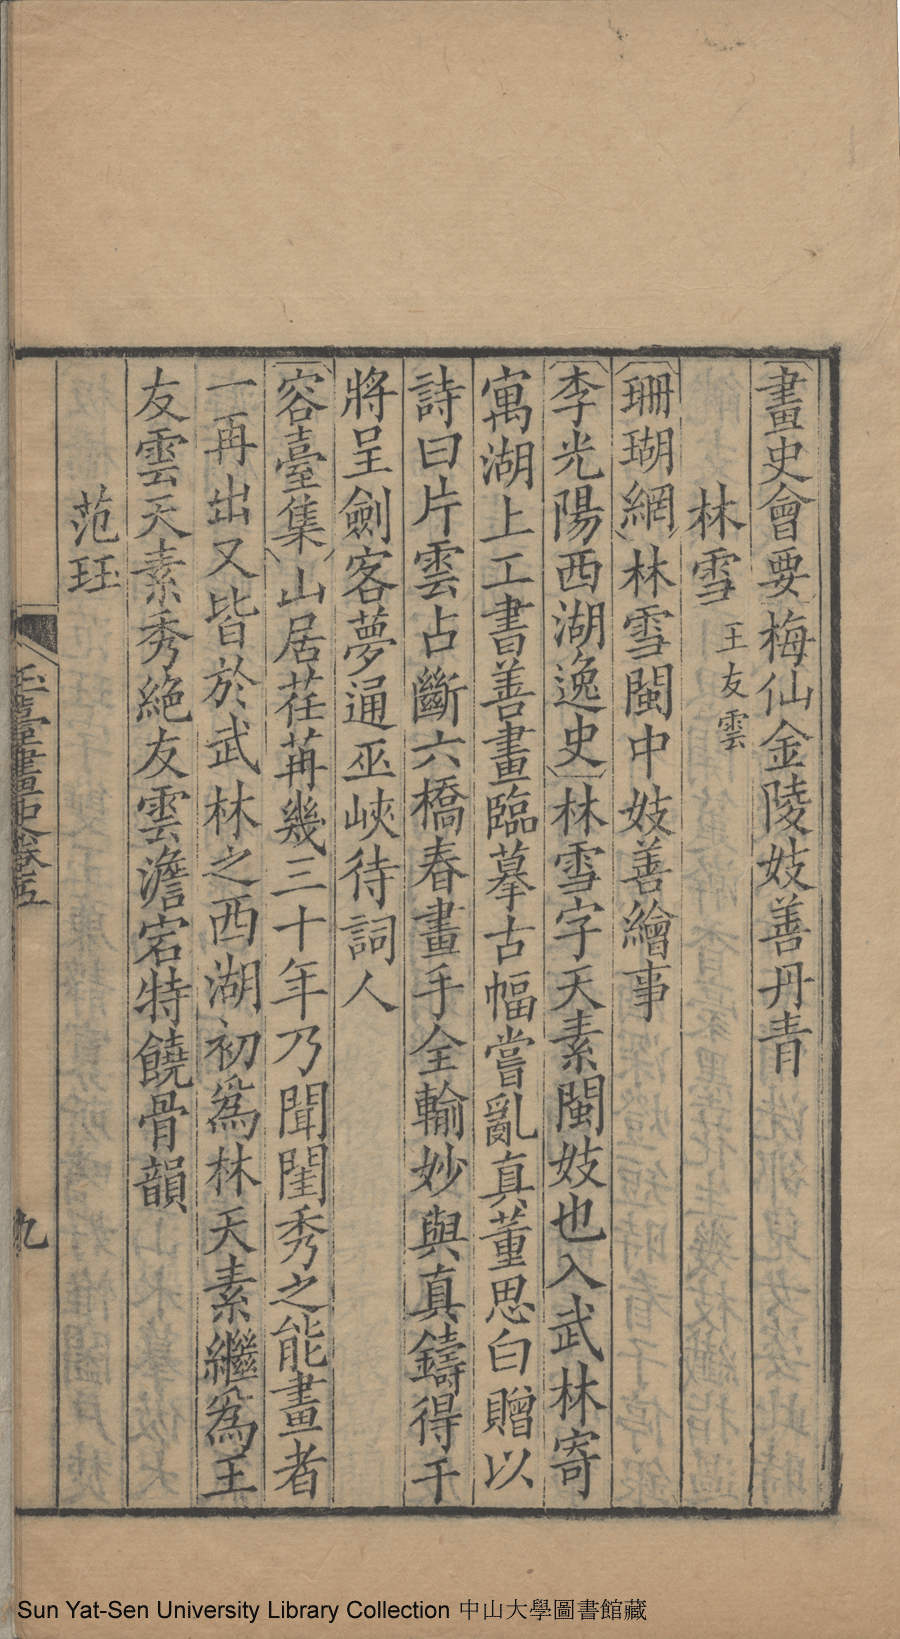 畫史會要梅仙金陵妓善丹青
林雪王友雲
珊瑚網林雪閩中妓善繪事
李光陽西湖逸史林雪字天素閩妓也入武林寄
寓湖上工書善畫臨摹古幅嘗亂真董思白贈以
詩曰片雲占斷六橋春畫手全輸妙與真鑄得干
將呈劍客夢通巫峽待詞人
容臺集山居荏苒幾三十年乃聞閨秀之能畫者
一再出又皆於武林之西湖初爲林天素繼爲王
友雲天素秀絕友雲澹宕特饒骨韻
范珏
玉臺畫史卷五
九
Sun Yat-Sen University Library Collection 中山大學圖書館藏